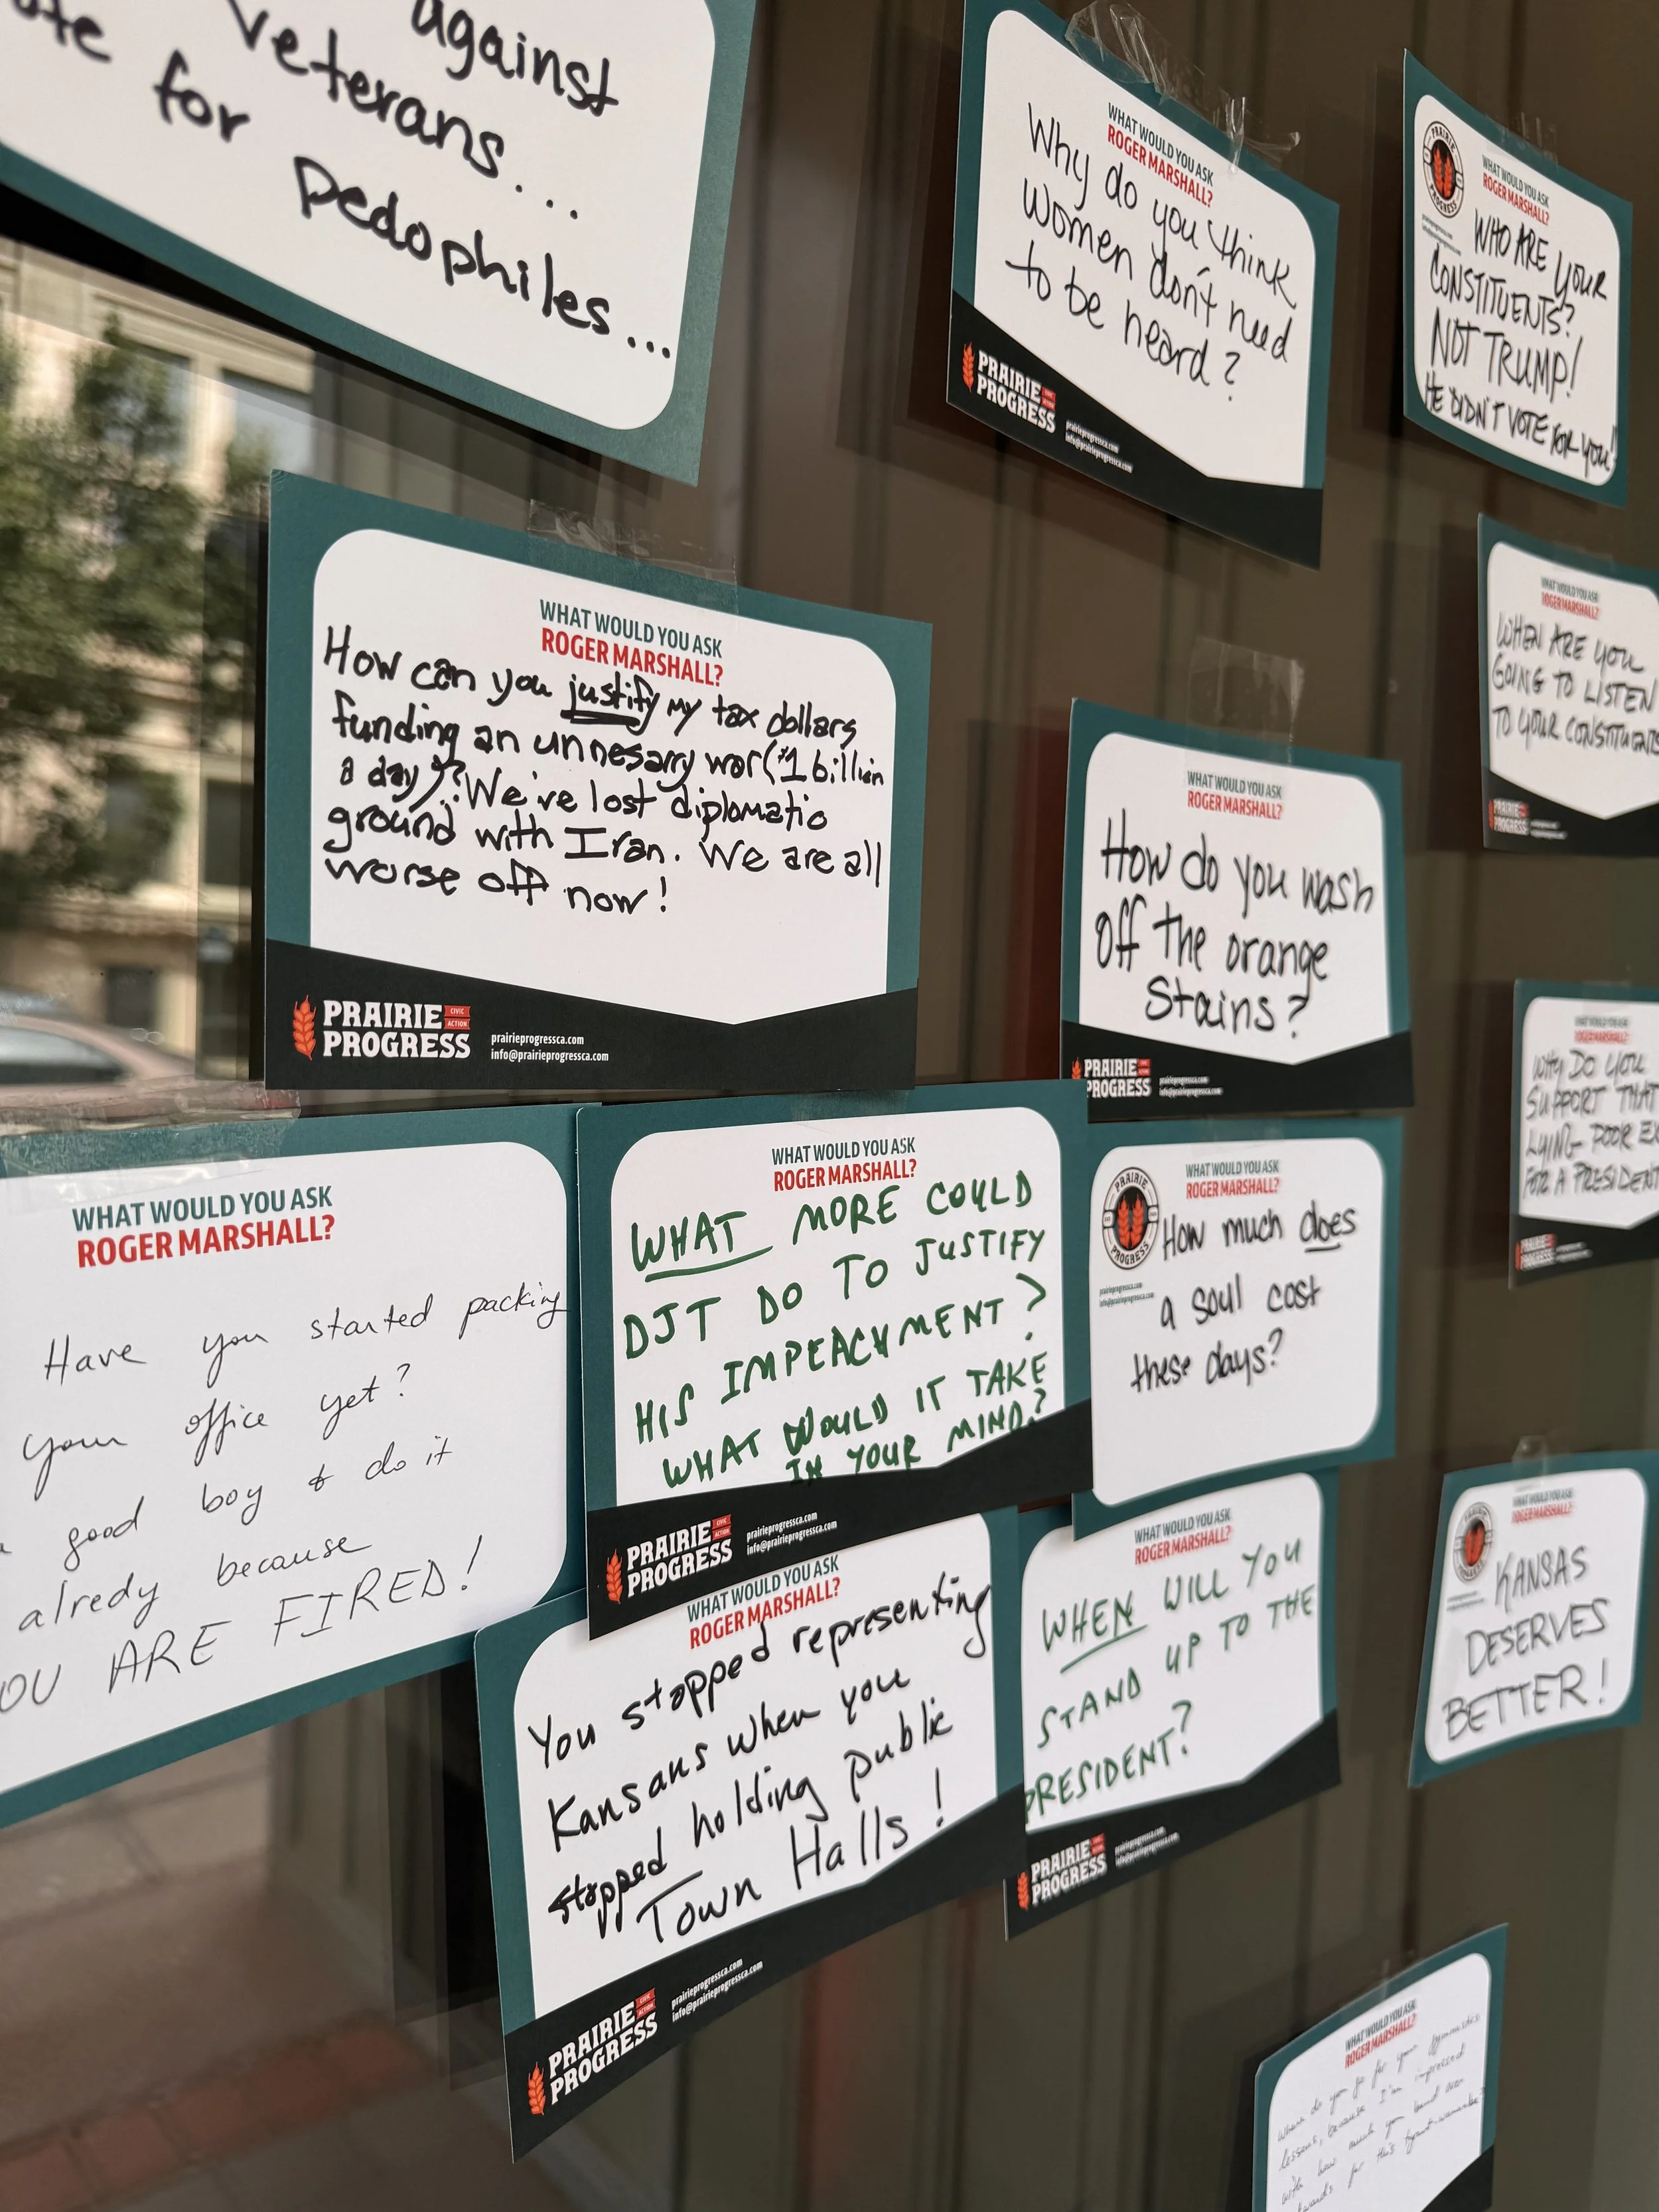 against
veterans...
for
pedophiles...
WHAT WOULD YOU ASK
ROGER MARSHALL?
Why do you think
women don't need
to be heard?
PRAIRIE
PROGRESS
CIVIC
ACTION
prairieprogressca.com
info@prairieprogressca.com
PRAIRIE
PROGRESS
WHAT WOULD YOU ASK
ROGER MARSHALL?
WHO ARE YOUR
CONSTITUENTS?
NOT TRUMP!
HE DIDN'T VOTE FOR YOU!
WHAT WOULD YOU ASK
ROGER MARSHALL?
How can you justify my tax dollars
funding an unnesarry war ($1 billion
a day)? We've lost diplomatic
ground with Iran. We are all
worse off now!
PRAIRIE
PROGRESS
CIVIC
ACTION
prairieprogressca.com
info@prairieprogressca.com
WHAT WOULD YOU ASK
ROGER MARSHALL?
WHEN ARE YOU
GOING TO LISTEN
TO YOUR CONSTITUENTS
PRAIRIE
PROGRESS
WHAT WOULD YOU ASK
ROGER MARSHALL?
How do you wash
off the orange
stains?
PRAIRIE
PROGRESS
CIVIC
ACTION
prairieprogressca.com
info@prairieprogressca.com
WHAT WOULD YOU ASK
ROGER MARSHALL?
WHY DO YOU
SUPPORT THAT
LYING- POOR EX
FOR A PRESIDENT
PRAIRIE
PROGRESS
WHAT WOULD YOU ASK
ROGER MARSHALL?
Have you started packing
your office yet?
good boy & do it
alredy because
OU ARE FIRED!
WHAT WOULD YOU ASK
ROGER MARSHALL?
WHAT MORE COULD
DJT DO TO JUSTIFY
HIS IMPEACHMENT?
WHAT WOULD IT TAKE
IN YOUR MIND?
PRAIRIE
PROGRESS
CIVIC
ACTION
prairieprogressca.com
info@prairieprogressca.com
PRAIRIE
PROGRESS
prairieprogressca.com
info@prairieprogressca.com
WHAT WOULD YOU ASK
ROGER MARSHALL?
How much does
a soul cost
these days?
WHAT WOULD YOU ASK
ROGER MARSHALL?
You stopped representing
Kansans when you
stopped holding public
Town Halls!
PRAIRIE
PROGRESS
CIVIC
ACTION
prairieprogressca.com
info@prairieprogressca.com
WHAT WOULD YOU ASK
ROGER MARSHALL?
WHEN WILL YOU
STAND UP TO THE
PRESIDENT?
PRAIRIE
PROGRESS
CIVIC
ACTION
prairieprogressca.com
info@prairieprogressca.com
WHAT WOULD YOU ASK
ROGER MARSHALL?
KANSAS
DESERVES
BETTER!
WHAT WOULD YOU ASK
ROGER MARSHALL?
Where do you go for your gymnastics
lessons, because I'm impressed
with how much you bend over
for this